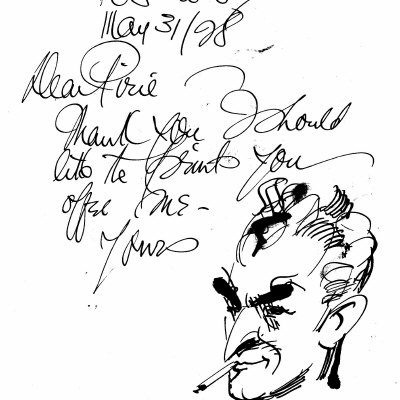 May 31/28
Dear Pirie
Thank you I should
like the prints you
offer me-
Yours